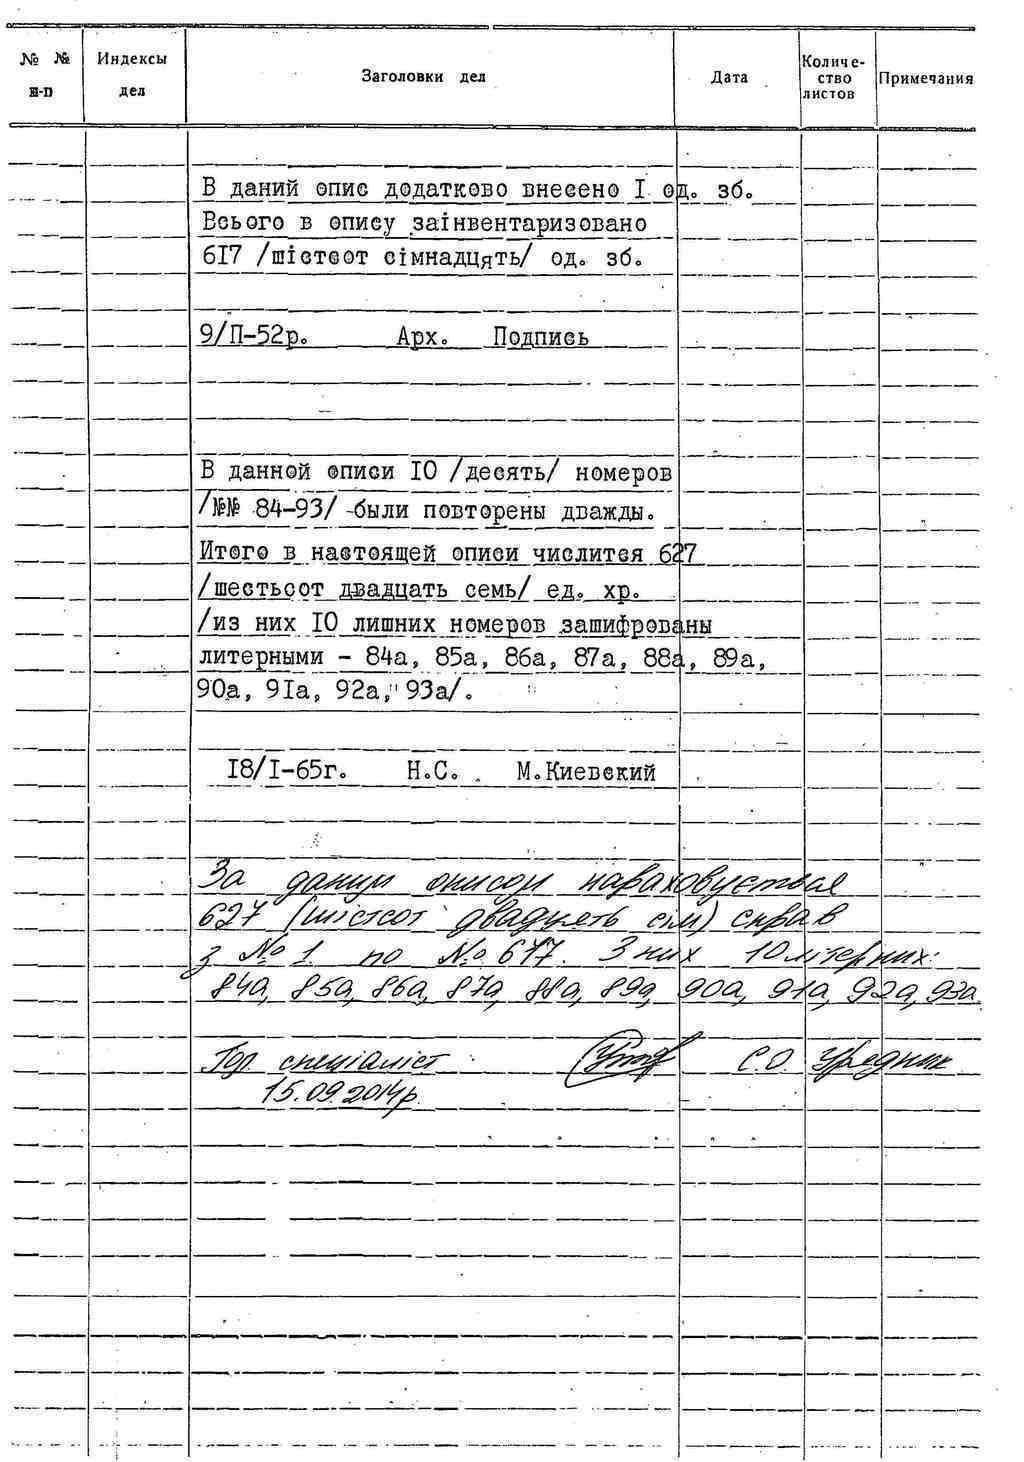 № № п-п
Индексы дел
Заголовки дел
Дата
Количе-
ство
листов
Примечания
В даний опис додатково внесено I од. зб.
Всього в опису заінвентаризовано
617 /шістсот сімнадцять/ од. зб.
9/П-52р. Арх. Подпись
В данной описи 10 /десять/ номеров
/№№ 84-93/ -были повторены дважды.
Итого в настоящей описи числится 627
/шестьсот двадцать семь/ ед. хр.
/из них 10 лишних номеров зашифрованы
литерными - 84а, 85а, 86а, 87а, 88а, 89а,
90а, 91а, 92а, 93а/.
18/I-65г. Н.С. М.Киевский
За даним описом нараховується
627 (шістсот двадцять сім) справ
з № 1 по № 617. З них 10 літерних:
84а, 85а, 86а, 87а, 88а, 89а, 90а, 91а, 92а, 93а.
спеціаліст С.О. Урядник
15.09.2014р.